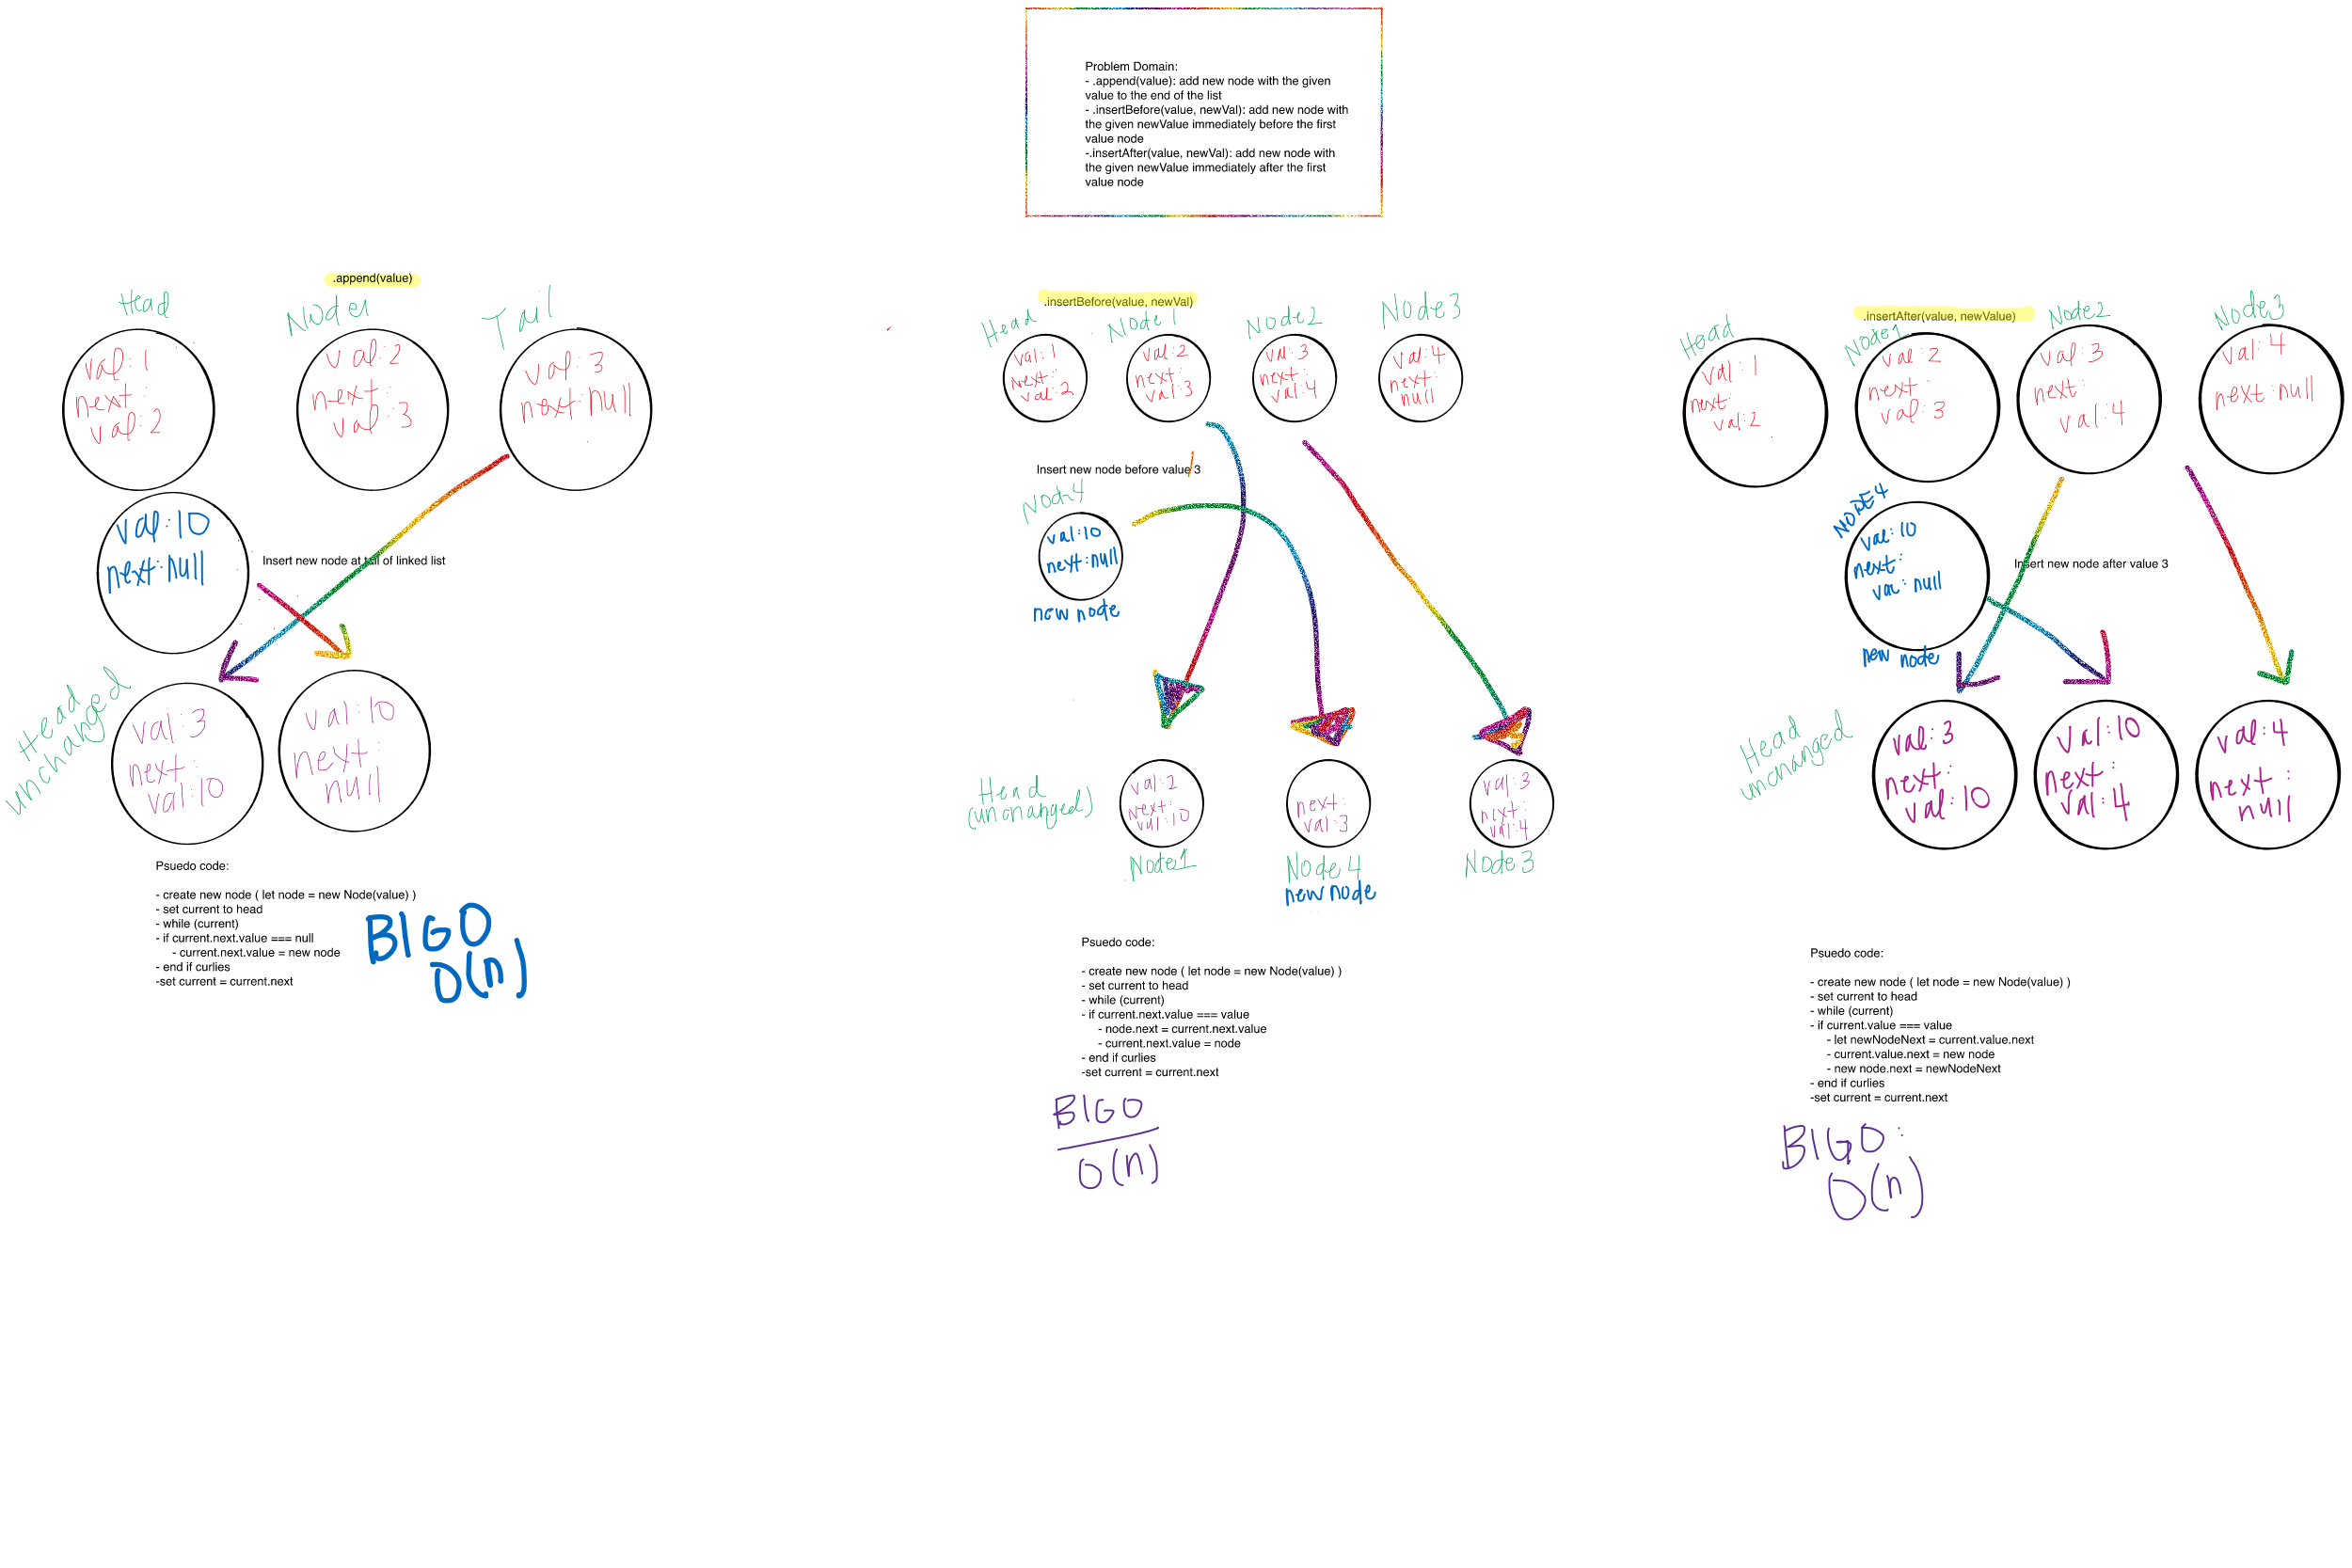 Problem Domain:
- .append(value): add new node with the given
value to the end of the list
- .insertBefore(value, newVal): add new node with
the given newValue immediately before the first
value node
-.insertAfter(value, newVal): add new node with
the given newValue immediately after the first
value node
.append(value)
Head
Node1
Tail
val: 1
next:
val: 2
val: 2
next:
val: 3
val: 3
next: null
val: 10
next: null
Insert new node at tail of linked list
Head
unchanged
val: 3
next:
val: 10
val: 10
next:
null
Psuedo code:
- create new node ( let node = new Node(value) )
- set current to head
- while (current)
- if current.next.value === null
- current.next.value = new node
- end if curlies
-set current = current.next
BIGO
O(n)
.insertBefore(value, newVal)
Head
Node 1
Node2
Node3
val: 1
next:
val: 2
val: 2
next:
val: 3
val: 3
next:
val: 4
val: 4
next:
null
Insert new node before value 3
Nod4
val: 10
next: null
new node
Head
(unchanged)
val: 2
next:
val: 10
next:
val: 3
val: 3
next:
val: 4
Node1
Node 4
new node
Node 3
Psuedo code:
- create new node ( let node = new Node(value) )
- set current to head
- while (current)
- if current.next.value === value
- node.next = current.next.value
- current.next.value = node
- end if curlies
-set current = current.next
BIGO
O(n)
.insertAfter(value, newValue)
Head
Node1
Node2
Node3
val: 1
next:
val: 2
val: 2
next:
val: 3
val: 3
next:
val: 4
val: 4
next: null
NODE4
val: 10
next:
val: null
new node
Insert new node after value 3
Head
unchanged
val: 3
next:
val: 10
val: 10
next:
val: 4
val: 4
next:
null
Psuedo code:
- create new node ( let node = new Node(value) )
- set current to head
- while (current)
- if current.value === value
- let newNodeNext = current.value.next
- current.value.next = new node
- new node.next = newNodeNext
- end if curlies
-set current = current.next
BIGO:
O(n)